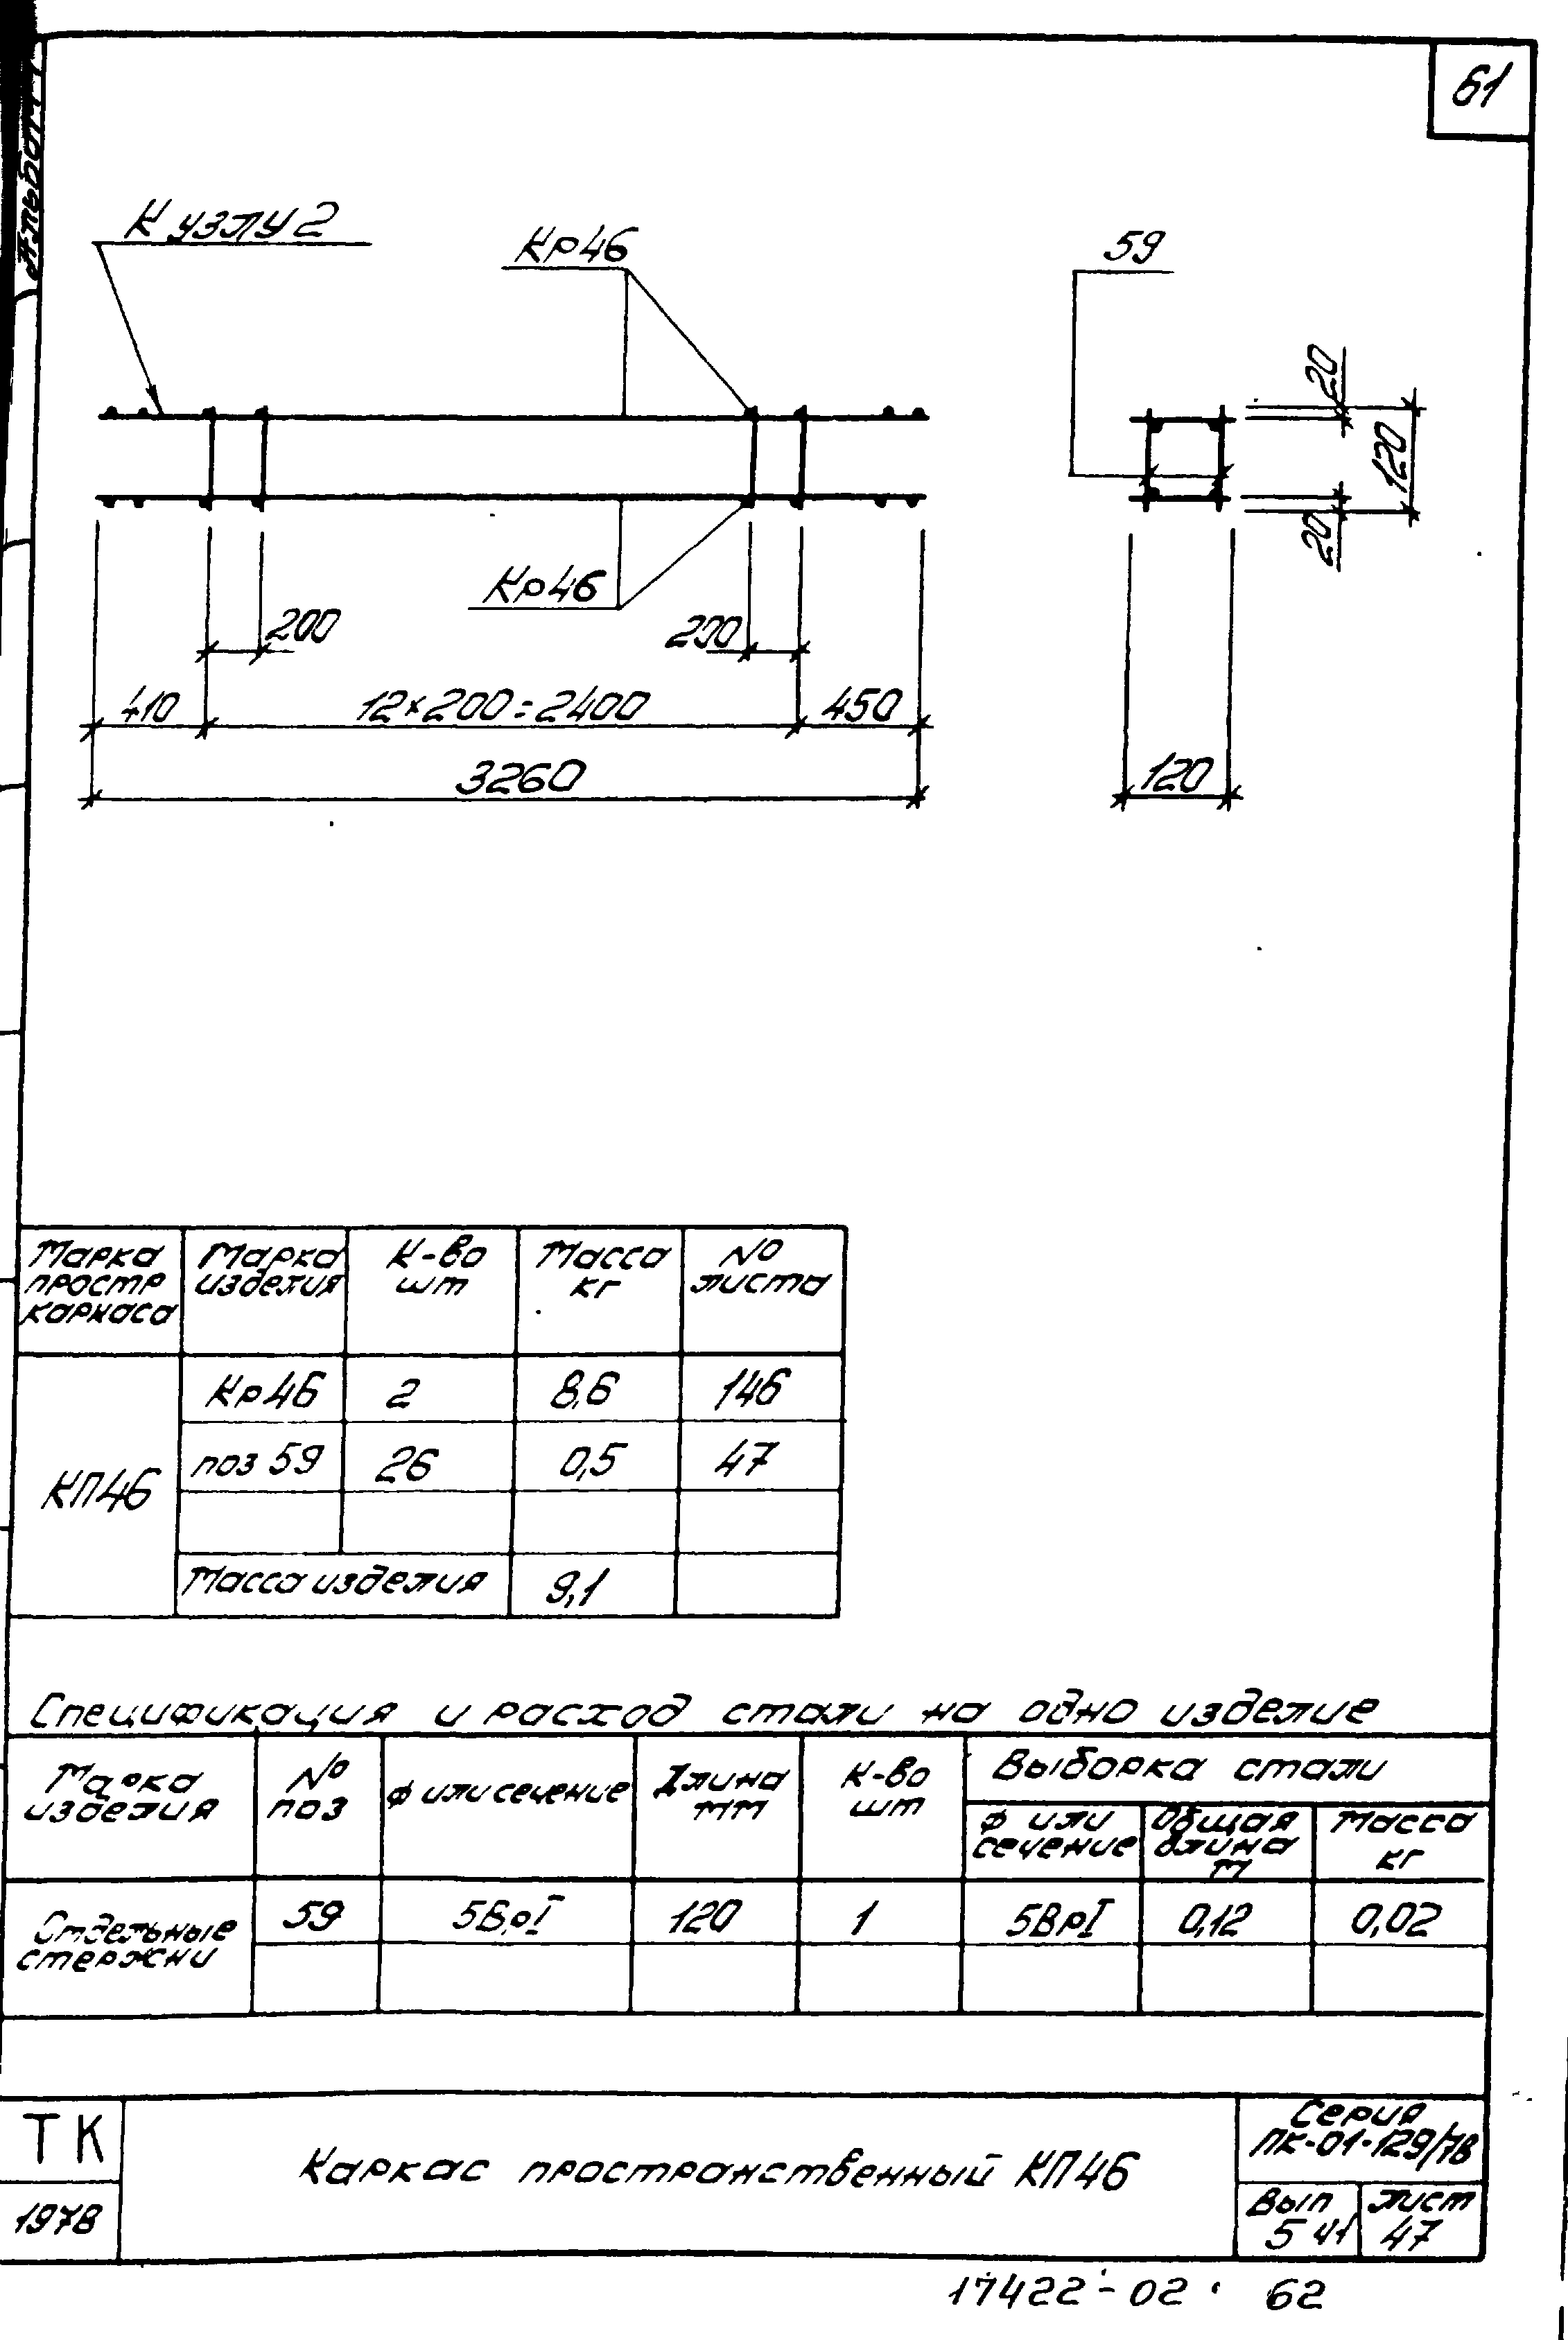 61
Альбом 1
К узлу 2
Кр46
59
20
120
20
Кр46
200
200
410
12×200=2400
450
3260
120
Марка простр каркаса
Марка изделия
К-во шт
Масса кг
№ листа
КП46
Кр46 2 8,6 146
поз 59 26 0,5 47
Масса изделия 9,1
Спецификация и расход стали на одно изделие
Марка изделия
№ поз
ф или сечение
Длина мм
К-во шт
Выборка стали
ф или сечение
Общая длина м
Масса кг
Отдельные стержни
59 5ВрI 120 1 5ВрI 0,12 0,02
ТК
1978
Каркас пространственный КП46
Серия
ПК-01-129/78
Вып
5 ч1
Лист
47
17422-02 62